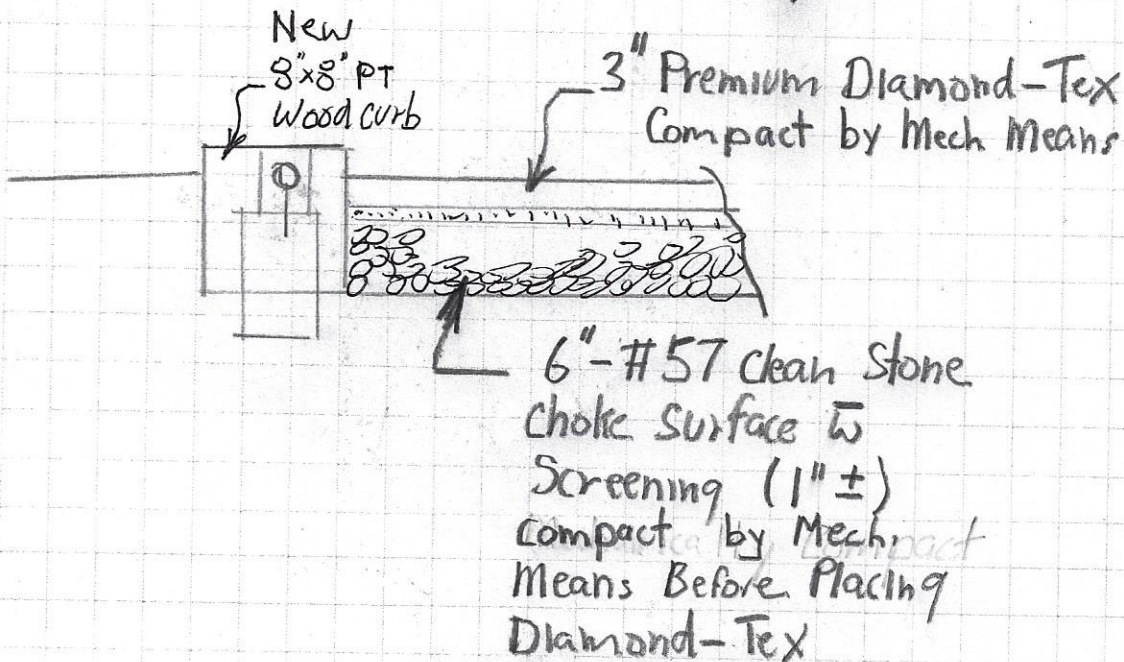 New
8"x8" PT
Wood curb
3" Premium Diamond-Tex
Compact by Mech Means
6"-#57 Clean Stone
Choke Surface w̄
Screening (1" ±)
Compact by Mech.
Means Before Placing
Diamond-Tex